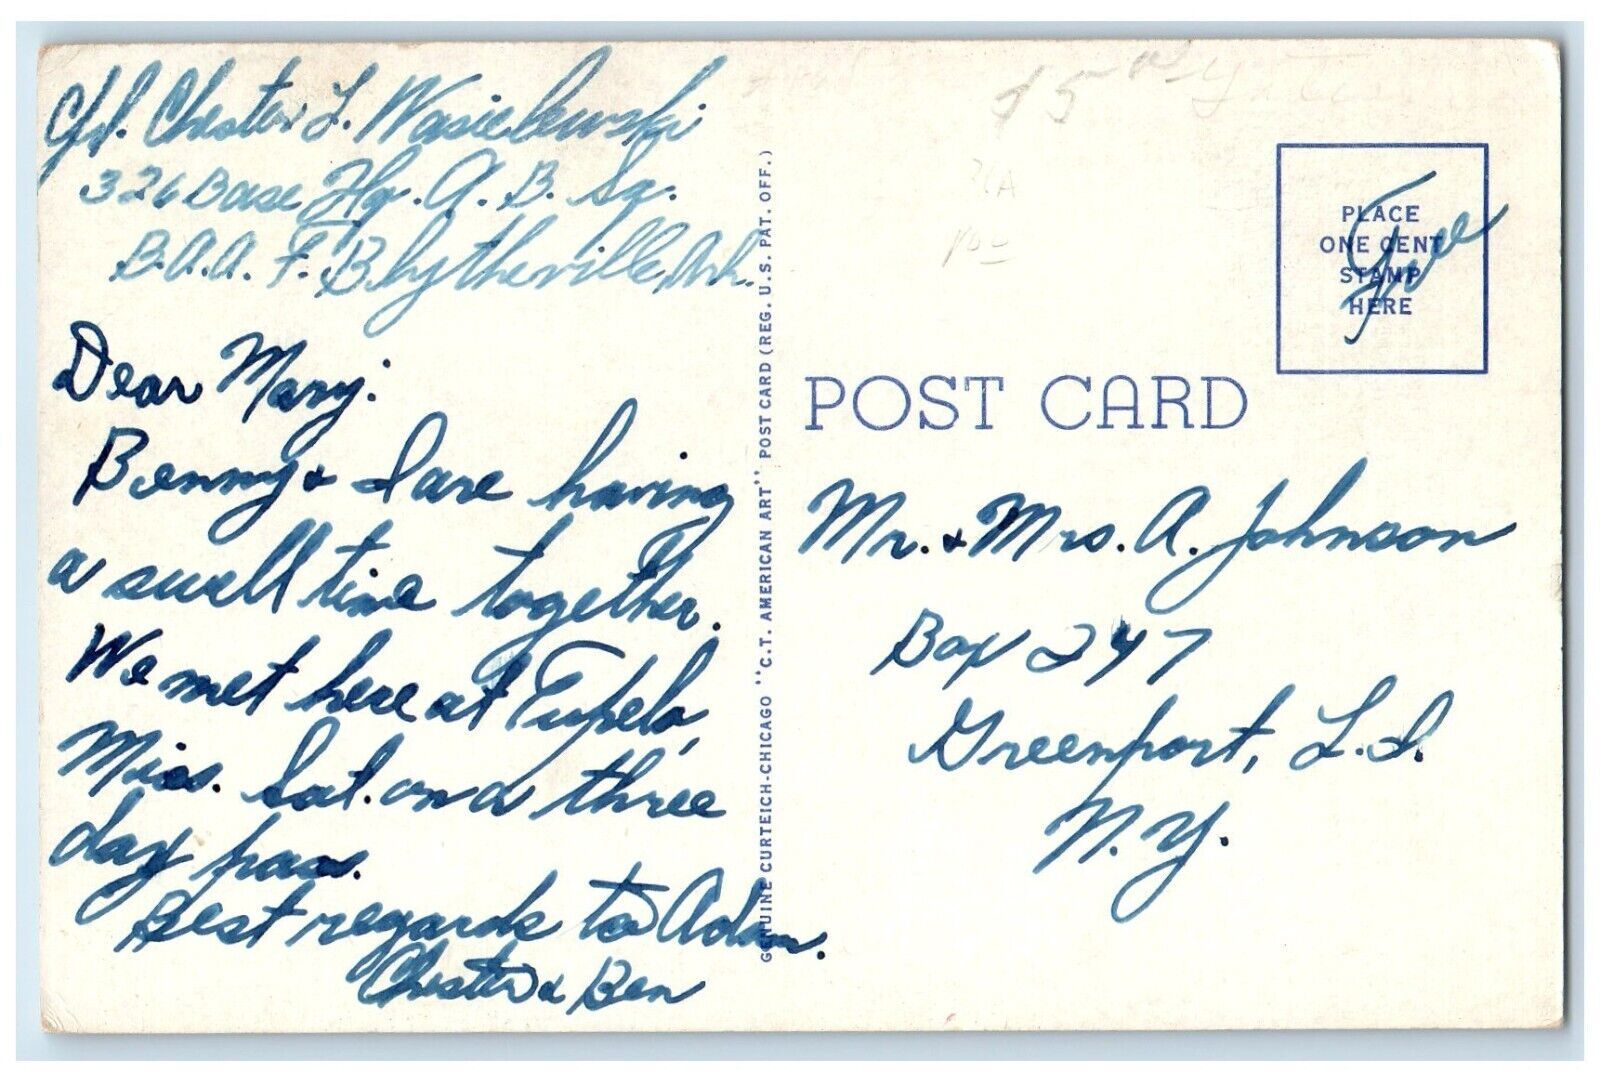 Cpl. Chester L. Wasielewski
326 Base Hq. A. B. Sq.
B.A.A.F. Blytheville, Ark.
Dear Mary:
Benny & I are having
a swell time together.
We met here at Tupelo,
Miss. Sat. on a three
day pass.
Best regards to Adam.
Chester & Ben
GENUINE CURTEICH-CHICAGO "C.T. AMERICAN ART" POST CARD (REG. U.S. PAT. OFF.)
PLACE
ONE CENT
STAMP
HERE
Free
POST CARD
Mr. & Mrs. A. Johnson
Box 247
Greenport, L.I.
N.Y.